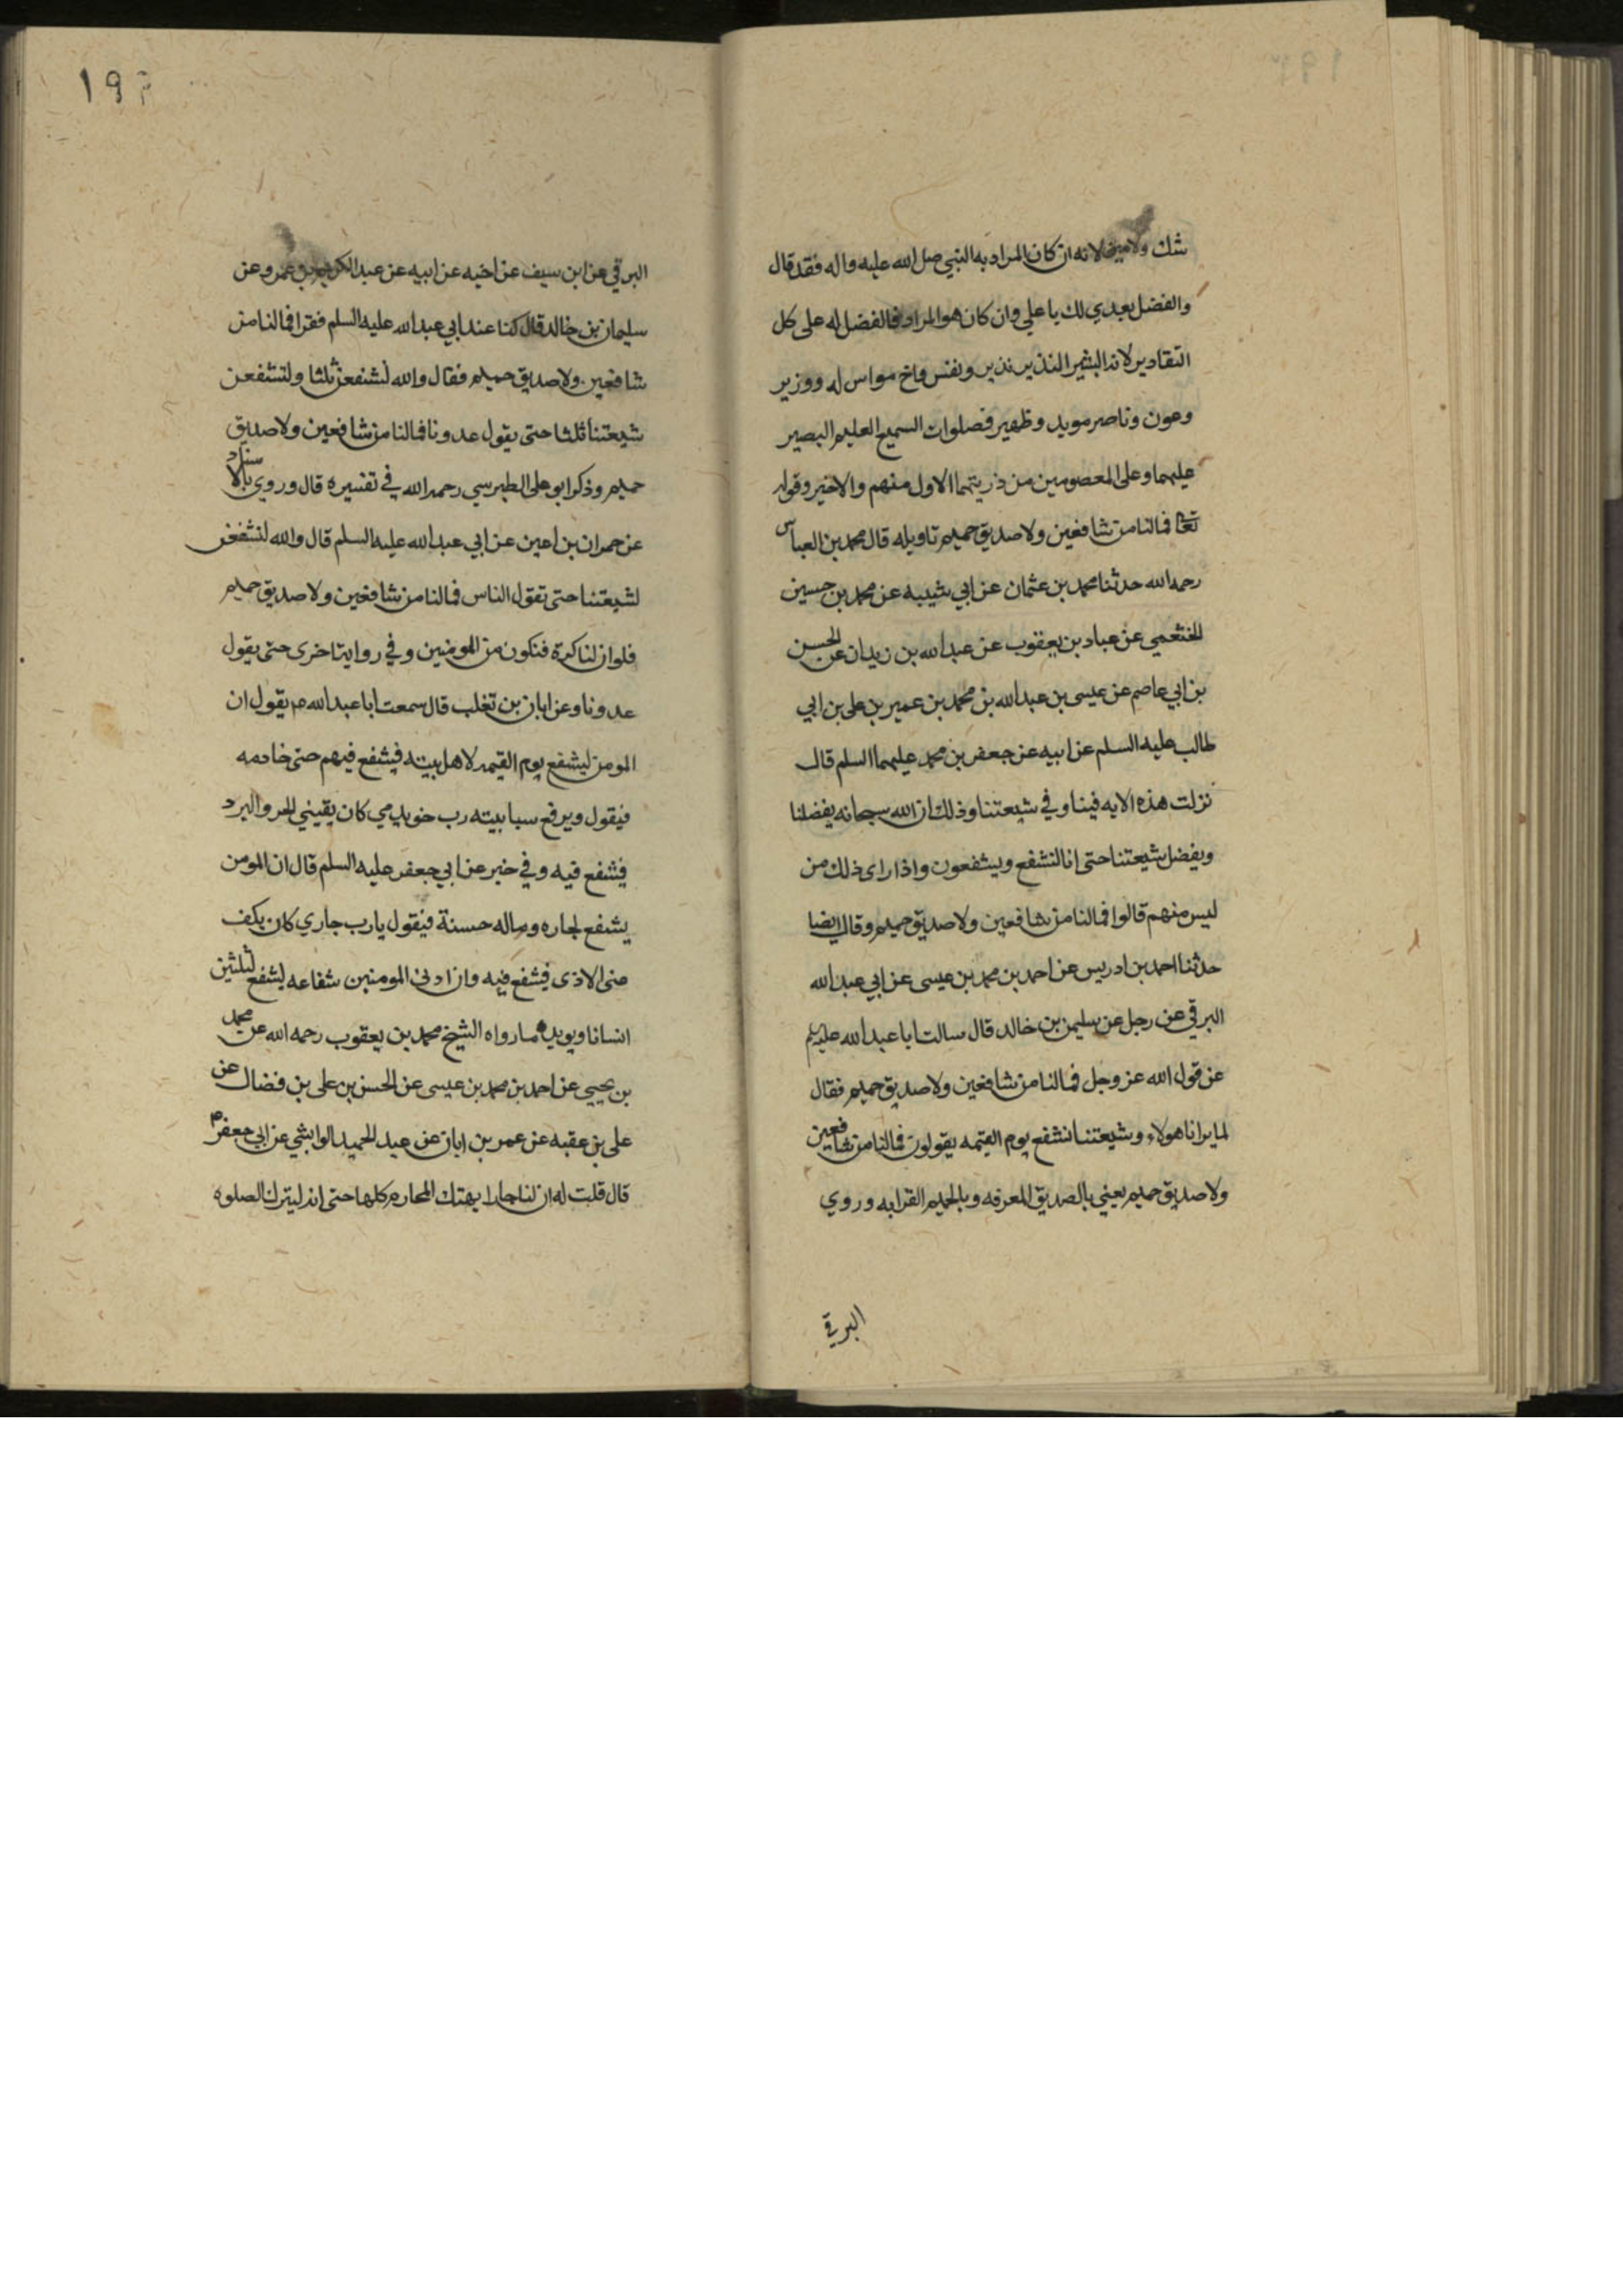 شك ولامين لانه ان كان المراد به النبي صلى الله عليه واله فقد قال
والفضل بعدي لك يا علي وان كان هو المراد فالفضل له على كل
التقادير لانه البشير النذير نذير ونفس واخ مواس له ووزير
وعون وناصر مويد وظهير فصلوات السميع العليم البصير
عليهما وعلى المعصومين من ذريتهما الاول منهم والاخير وقوله
تعا فمالنا من شافعين ولا صديق حميم تاويله قال محمد بن العباس
رحمه الله حدثنا محمد بن عثمان عن ابي شيبه عن محمد بن حسين
الخثعمي عن عباد بن يعقوب عن عبد الله بن زيدان عن الحسن
بن ابي عاصم عن عيسى بن عبد الله بن محمد بن عمير بن علي بن ابي
طالب عليه السلم عن ابيه عن جعفر بن محمد عليهما السلم قال
نزلت هذه الايه فينا وفي شيعتنا وذلك ان الله سبحانه يفضلنا
ويفضل شيعتنا حتى انا لنشفع ويشفعون واذا راى ذلك من
ليس منهم قالوا فمالنا من شافعين ولا صديق حميم وقال ايضا
حدثنا احمد بن ادريس عن احمد بن محمد بن عيسى عن ابي عبد الله
البرقي عن رجل عن سليمن بن خالد قال سالت ابا عبد الله عليه
عن قول الله عز وجل فمالنا من شافعين ولا صديق حميم فقال
لما يرانا هولاء وشيعتنا نشفع يوم القيمه يقولون فمالنا من شافعين
ولا صديق حميم يعني بالصديق المعرفه وبالحميم القرابه وروي
البرقي
١٩٣
البرقي عن ابن سيف عن اخيه عن ابيه عن عبد الكريم بن عمرو عن
سليمان بن خالد قال كنا عند ابي عبد الله عليه السلم فقرا فمالنا من
شافعين ولا صديق حميم فقال والله لنشفعن ثلثا ولتشفعن
شيعتنا ثلثا حتى يقول عدونا فمالنا من شافعين ولا صديق
حميم وذكر ابو علي الطبرسي رحمه الله في تفسيره قال وروي بالاسناد
عن حمران بن اعين عن ابي عبد الله عليه السلم قال والله لنشفعن
لشيعتنا حتى تقول الناس فمالنا من شافعين ولا صديق حميم
فلو ان لنا كرة فنكون من المومنين وفي رواية اخرى حتى يقول
عدونا وعن ابان بن تغلب قال سمعت ابا عبد الله م يقول ان
المومن ليشفع يوم القيمه لاهل بيته فيشفع فيهم حتى خادمه
فيقول ويرفع سبابيته رب خويدمي كان يقيني الحر والبرد
فيشفع فيه وفي خبر عن ابي جعفر عليه السلم قال ان المومن
يشفع لجاره وماله حسنة فيقول يا رب جاري كان يكف
عني الاذى فيشفع فيه وان ادنى المومنين شفاعه ليشفع لثلثين
انسانا ويويده ما رواه الشيخ محمد بن يعقوب رحمه الله عن محمد
بن يحيى عن احمد بن محمد بن عيسى عن الحسن بن علي بن فضال عن
علي بن عقبه عن عمر بن ابان عن عبد الحميد الوابشي عن ابي جعفر م
قال قلت له ان لنا جارا يهتك المحارم كلها حتى انه ليترك الصلوه